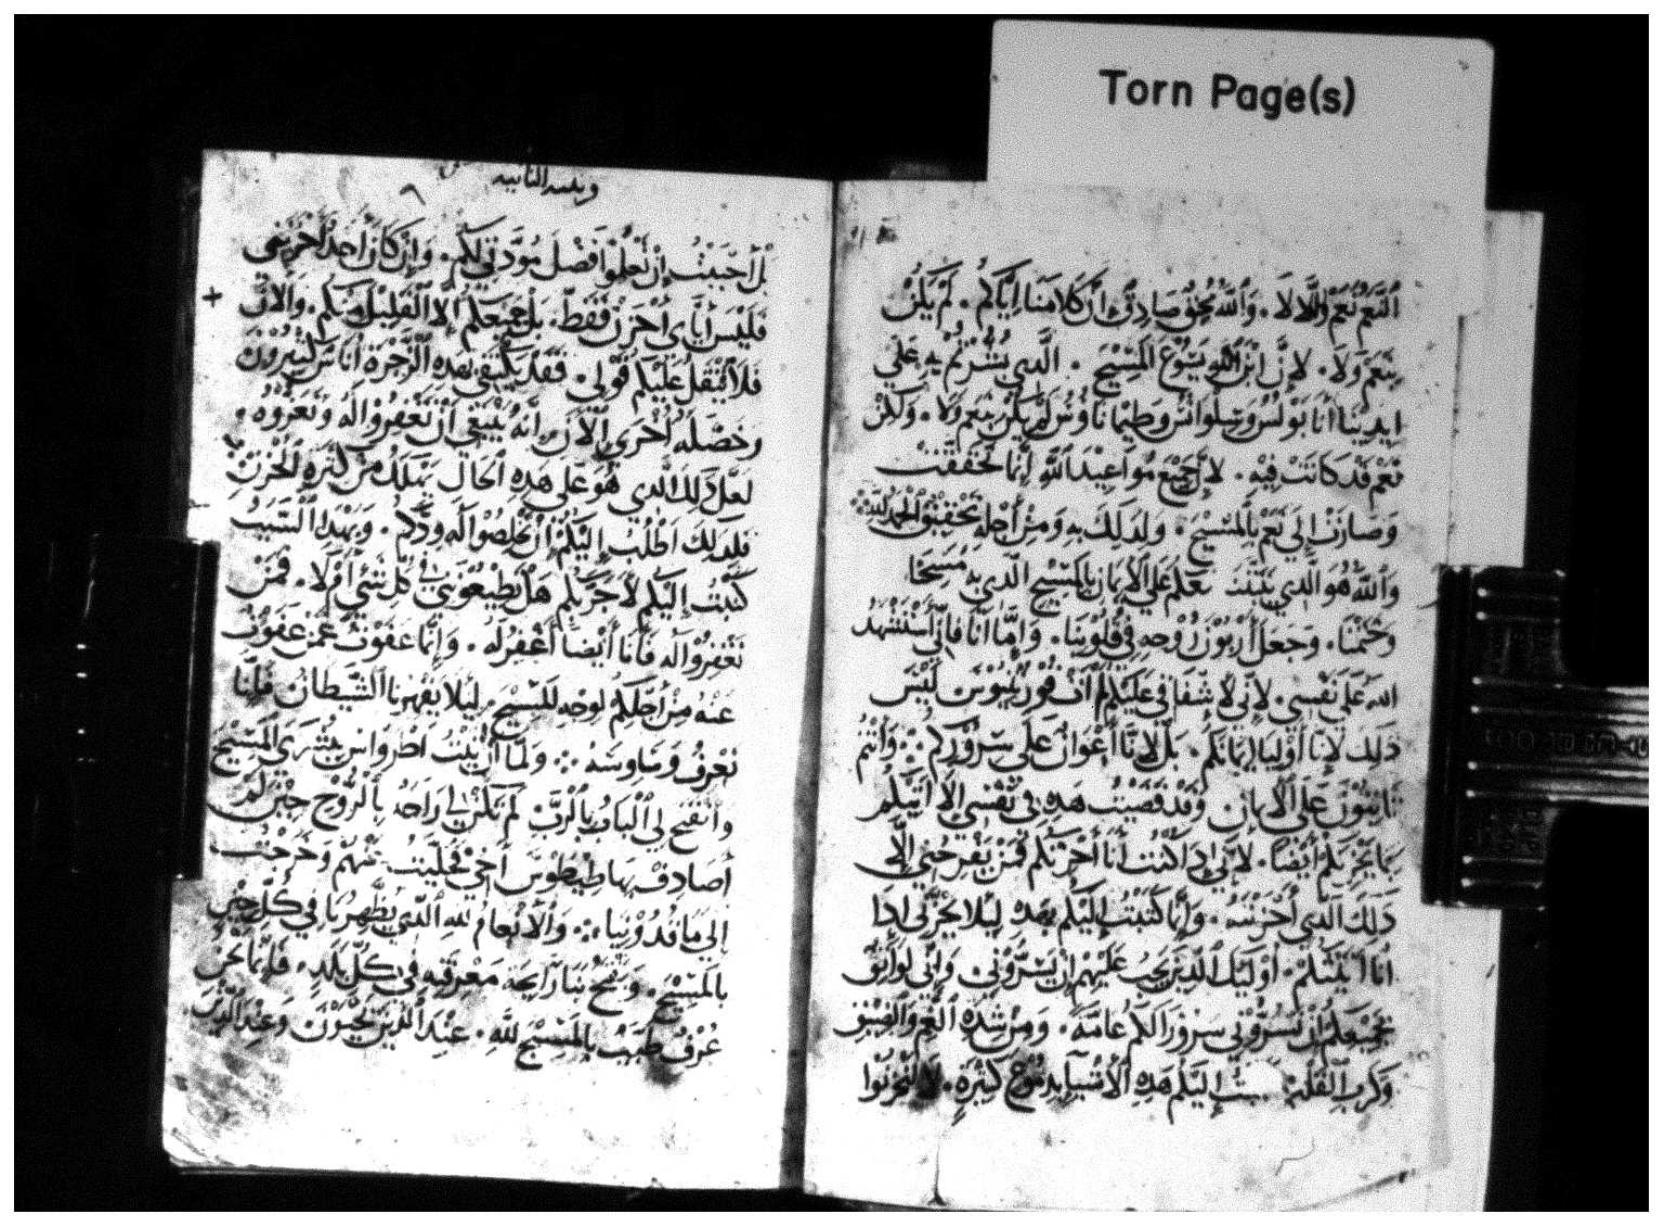 Torn Page(s)
النعم نعم واللا لا. والله محق صادق ان كلامنا اياكم. لم يكن
بنعم ولا. لان ابن الله يسوع المسيح. الذي بشرتم به على
ايدينا انا بولس وسلوانس وطيماثاوس لم يكن بنعم ولا. ولكن
نعم قد كانت فيه. لان جميع مواعيد الله انما تحققت
وصارت الى نعم بالمسيح. ولذلك به ومن اجله تحقيق الحمد لله
والله هو الذي يثبتنا معكم على الايمان بالمسيح الذي به مسحنا
وختمنا. وجعل اربون روحه في قلوبنا. واما انا فاني استشهد
الله على نفسي. لاني لاشفاقي عليكم لم آت قورنثيوس ليس
ذلك لانا اوليا ايمانكم. بل لانا اعوان على سروركم وانتم
ثابتون على الايمان وقد قضيت هذه في نفسي الا اتيكم
بما يحزنكم ايضا. لاني اذا كنت انا احزنكم فمن يفرحني الا
ذلك الذي احزنته. وانما كتبت اليكم بهذه ليلا يحزنني اذا
انا اتيتكم. اوليك الذين يجب عليهم ان يسروني واني لواثق
بجميعكم ان سروري سرورا لكم عامة. ومن شدة الغم والضيق
وكرب القلب كتبت اليكم هذه الاشيا بدموع كثيرة. لا لتحزنوا
وبقيه الثانيه
بل احببت ان تعلموا فضل مودتي لكم. وان كان احد احزنني
فليس اياي احزن فقط. بل جميعكم الا القليل منكم. والان
فلا يثقل عليكم قولي. فقد يكتفي بهذه الزجرة اناس كثيرون
وخصلة اخرى الان انه ينبغي ان تغفروا له وتعزوه.
لعل ذلك الذي هو على هذه الحال يهلك من كثرة الحزن
فلذلك اطلب اليكم ان تخلصوا له ودكم. وبهذا السبب
كتبت اليكم لاجربكم هل تطيعوني في كل شي ام لا. فمن
تغفروا له فانا ايضا اغفر له. وانما عفوت عمن عفوت
عنه من اجلكم لوجه المسيح ليلا يقهرنا الشيطان فانا
نعرف وساوسه ولما ان اتيت اطرواس ببشرى المسيح
وانفتح لي الباب بالرب لم تكن لي راحة بالروح حين لم
اصادف بها طيطوس اخي فخليت عنهم وخرجت
الى ماقدونيا والانعام لله الذي يظهرنا في كل حين
بالمسيح. ويفيح بنا رايحة معرفته في كل بلد. فانما نحن
عرف طيب بالمسيح لله. عند الذين يحيون وعند الذين